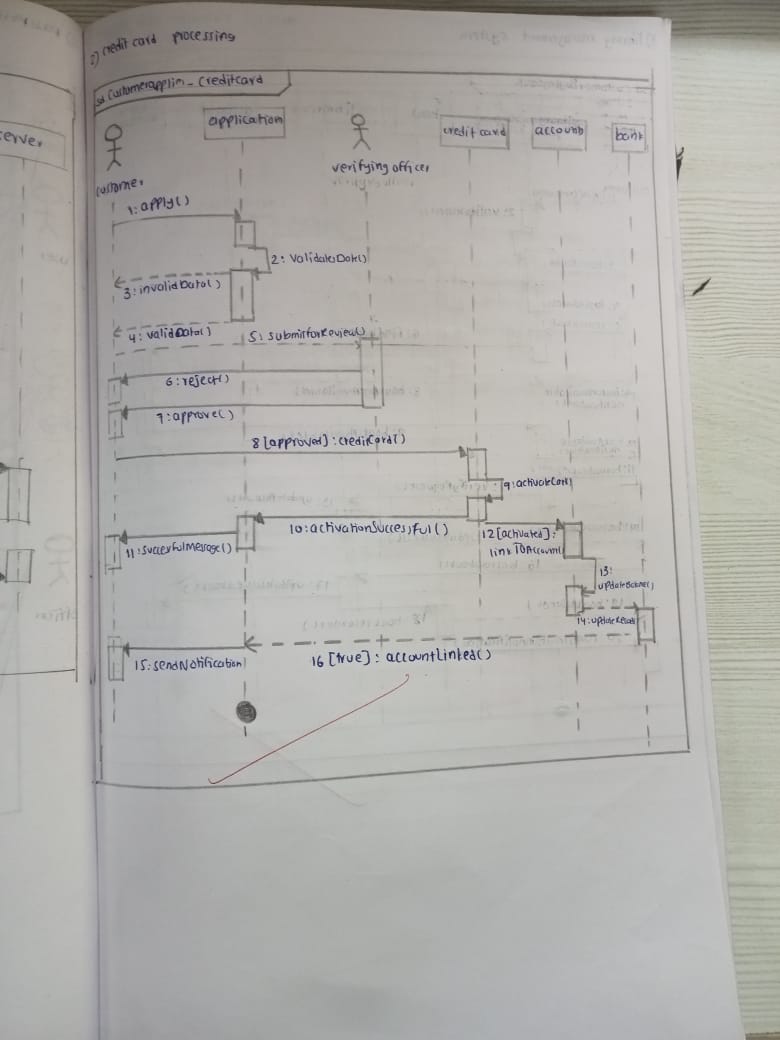 2) credit card processing
sd Customerapplin - Creditcard
application
credit card
account
bank
verifying officer
customer
1: apply()
2: ValidateData()
3: invalidData()
4: validData()
5: submitforReview()
6: reject()
7: approve()
8 [approved]: creditCard()
9: activateCard()
10: activationSuccessful()
11: SuccesfulMessage()
12 [activated]:
link TOAccount()
13:
14: updateRecord
15: sendNotification
16 [true]: accountLinked()